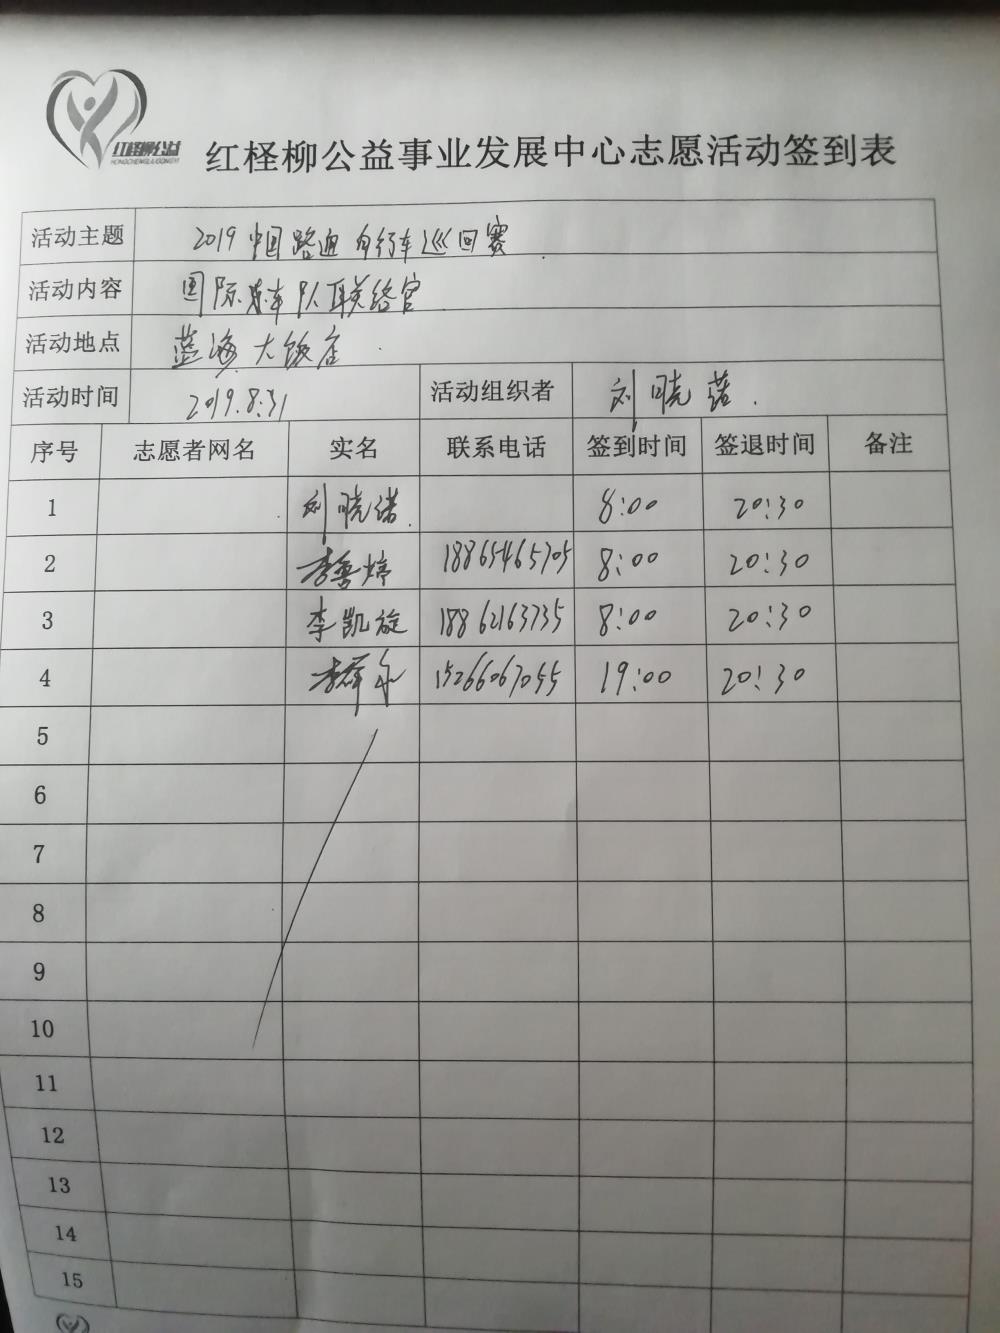 红柽柳公益
HONGCHENGLIUGONGYI
红柽柳公益事业发展中心志愿活动签到表
活动主题 2019 中国路 自行车巡回赛
活动内容 国际 车队联络官
活动地点 蓝海大饭店
活动时间 2019.8.31 活动组织者 刘晓
序号 志愿者网名 实名 联系电话 签到时间 签退时间 备注
1 刘晓 8:00 20:30
2 李 婷 18865465705 8:00 20:30
3 李凯旋 18862163735 8:00 20:30
4 李 15266067055 19:00 20:30
5
6
7
8
9
10
11
12
13
14
15